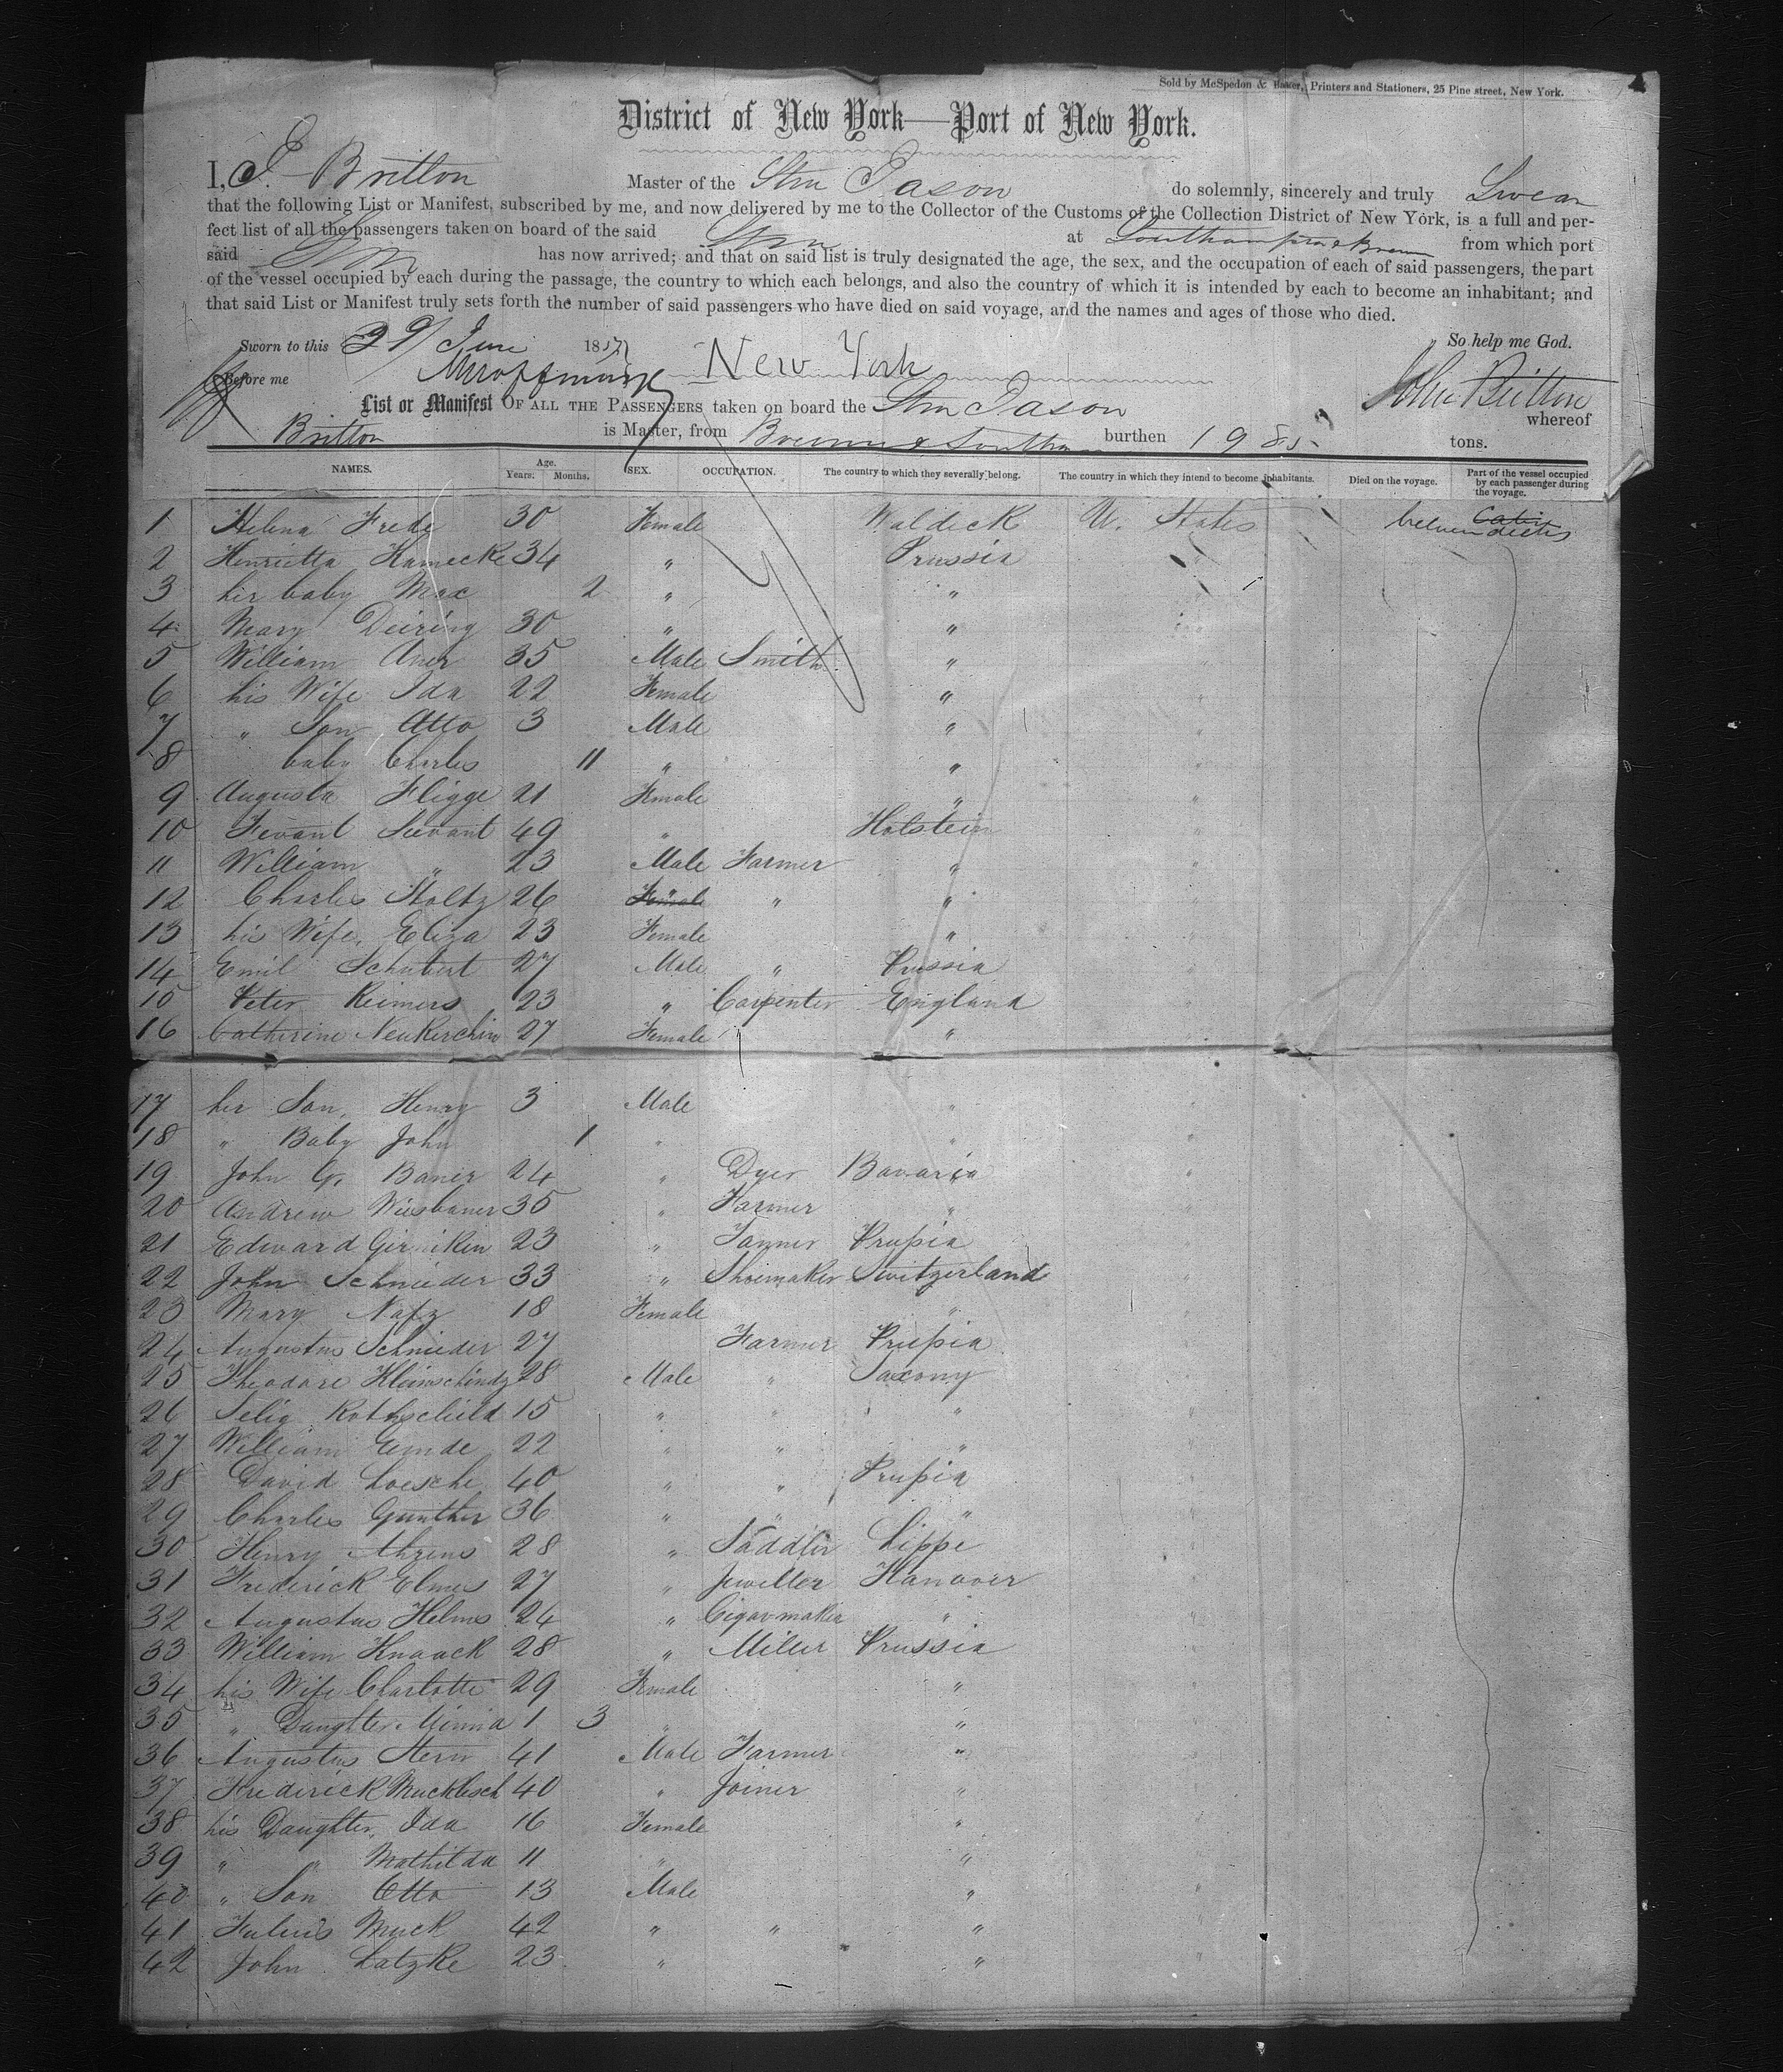 Sold by McSpedon & Baker, Printers and Stationers, 25 Pine street, New York.
District of New York—Port of New York.
I, J. Britton Master of the Stm Jason do solemnly, sincerely and truly Swear
that the following List or Manifest, subscribed by me, and now delivered by me to the Collector of the Customs of the Collection District of New York, is a full and per-
fect list of all the passengers taken on board of the said Stm at Southampton & Bremen from which port
said Stm has now arrived; and that on said list is truly designated the age, the sex, and the occupation of each of said passengers, the part
of the vessel occupied by each during the passage, the country to which each belongs, and also the country of which it is intended by each to become an inhabitant; and
that said List or Manifest truly sets forth the number of said passengers who have died on said voyage, and the names and ages of those who died.
Sworn to this 29 June 1857 So help me God.
Before me New York John Britton
List or Manifest OF ALL THE PASSENGERS taken on board the Stm Jason whereof
Britton is Master, from Bremen & Southam burthen 1985 tons.
NAMES. Age. Years. Months. SEX. OCCUPATION. The country to which they severally belong. The country in which they intend to become inhabitants. Died on the voyage. Part of the vessel occupied by each passenger during the voyage.
1 Helena Frede 30 Female Waldeck U. States Cabin between decks
2 Henrietta Hamecke 34 " Prussia "
3 her baby Max 2 " "
4 Mary Deiring 30 " " "
5 William Auer 35 Male Smith "
6 his Wife Ida 22 Female " "
7 " Son Otto 3 Male " "
8 baby Charles 11 " " "
9 Augusta Fligge 21 Female " "
10 Sievant 49 " Holstein "
11 William " 23 Male Farmer " "
12 Charles Stoltz 26 Female " " "
13 his Wife, Eliza 23 Female " "
14 Emil Schubert 27 Male " Prussia "
15 Peter Reimers 23 " Carpenter England "
16 Catherine Neukerchin 27 Female " "
17 her Son, Henry 3 Male " "
18 " Baby John 1 " " "
19 John G. Bauer 24 " Dyer Bavaria "
20 Andrew Wiesbauer 35 " Farmer " "
21 Edward Girniken 23 " Tanner Prussia "
22 John Schnieder 33 " Shoemaker Switzerland "
23 Mary Nafz 18 Female " "
24 Augustus Schnieder 27 Farmer Prussia "
25 Theodore Kleinschindz 28 Male " Saxony "
26 Selig Rothschild 15 " " " "
27 William Emde 22 " " " "
28 David Loesche 40 " " Prussia "
29 Charles Gunther 36 " " " "
30 Henry Ahrens 28 " Saddler Lippe "
31 Frederick Elmes 27 " Jeweller Hanover "
32 Augustus Helms 24 " Cigarmaker " "
33 William Knaack 28 " Miller Prussia "
34 his Wife Charlotte 29 Female " "
35 " Daughter Minna 1 3 " " "
36 Augustus Stern 41 Male Farmer " "
37 Frederick Muckbesch 40 " Joiner " "
38 his Daughter, Ida 16 Female " "
39 " " Mathilda 11 " " "
40 " Son Otto 13 Male " "
41 Julius Muck 42 " " " "
42 John Latzke 23 " " "